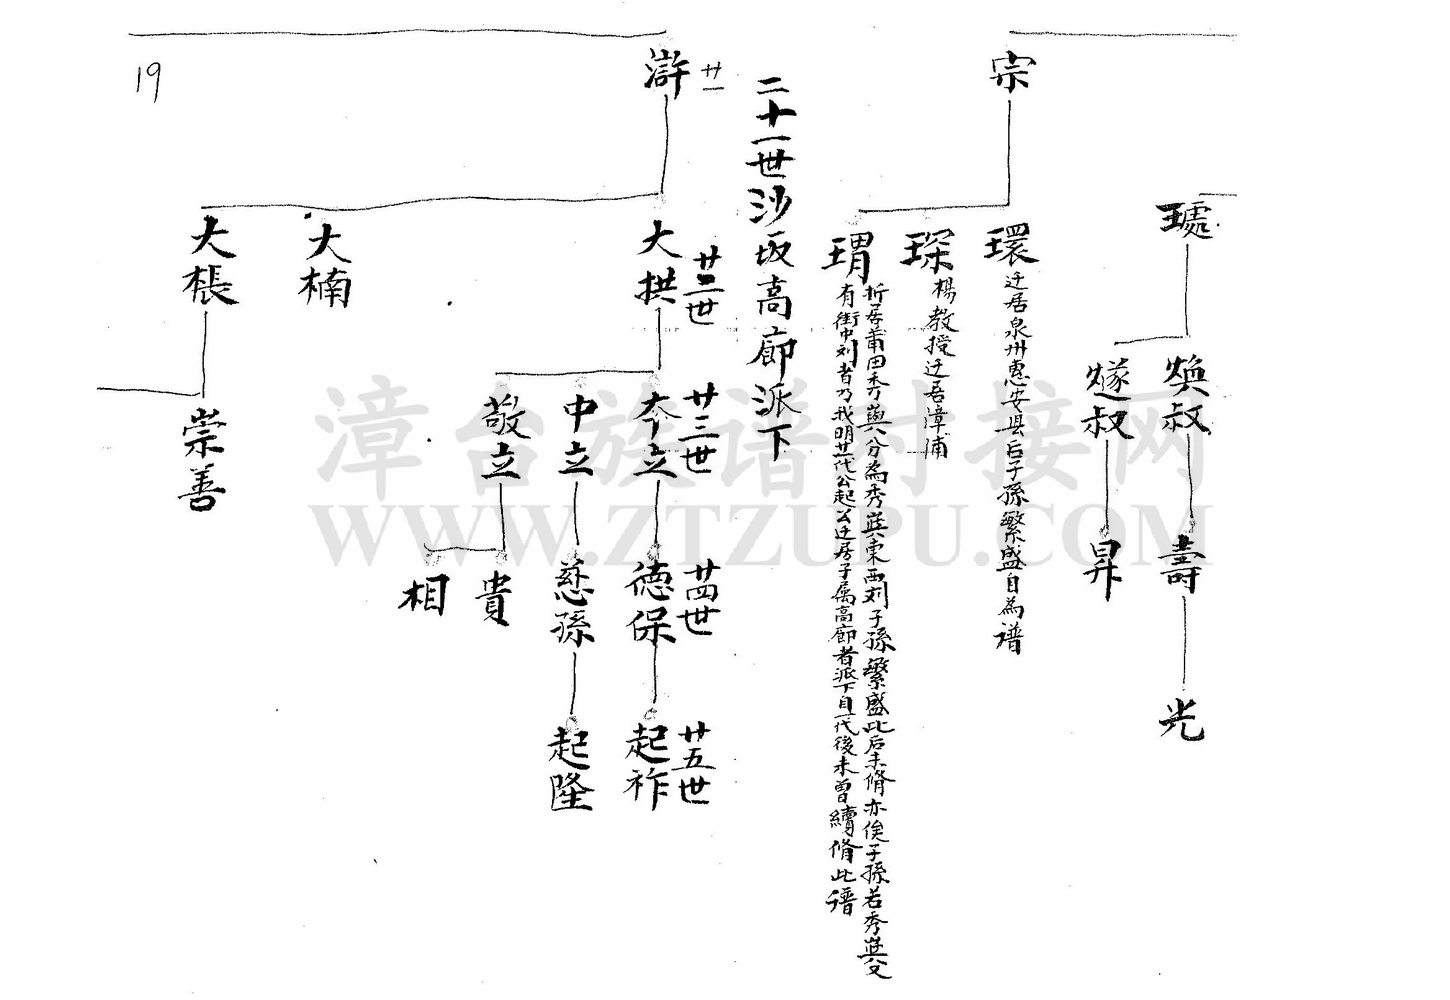 琥
煥叔
壽
光
燧叔
昇
宗
環
迁居泉州惠安县后子孫繁盛自為谱
琛
楊教授迁吾漳浦
瑁
折居莆田秀嶼分為秀嶼東西刘子孫繁盛此后未脩亦俟子孫若秀嶼又
有街中刘者乃我明廿代公起公迁居子属高廊者派下自一代後未曾續脩此譜
二十一世沙坂高廊派下
廿一
滸
廿二世
大拱
大楠
大棖
廿三世
本立
中立
敬立
崇善
廿四世
德保
慈孫
貴
相
廿五世
起祚
起隆
19
漳台族谱对接网
WWW.ZTZUPU.COM